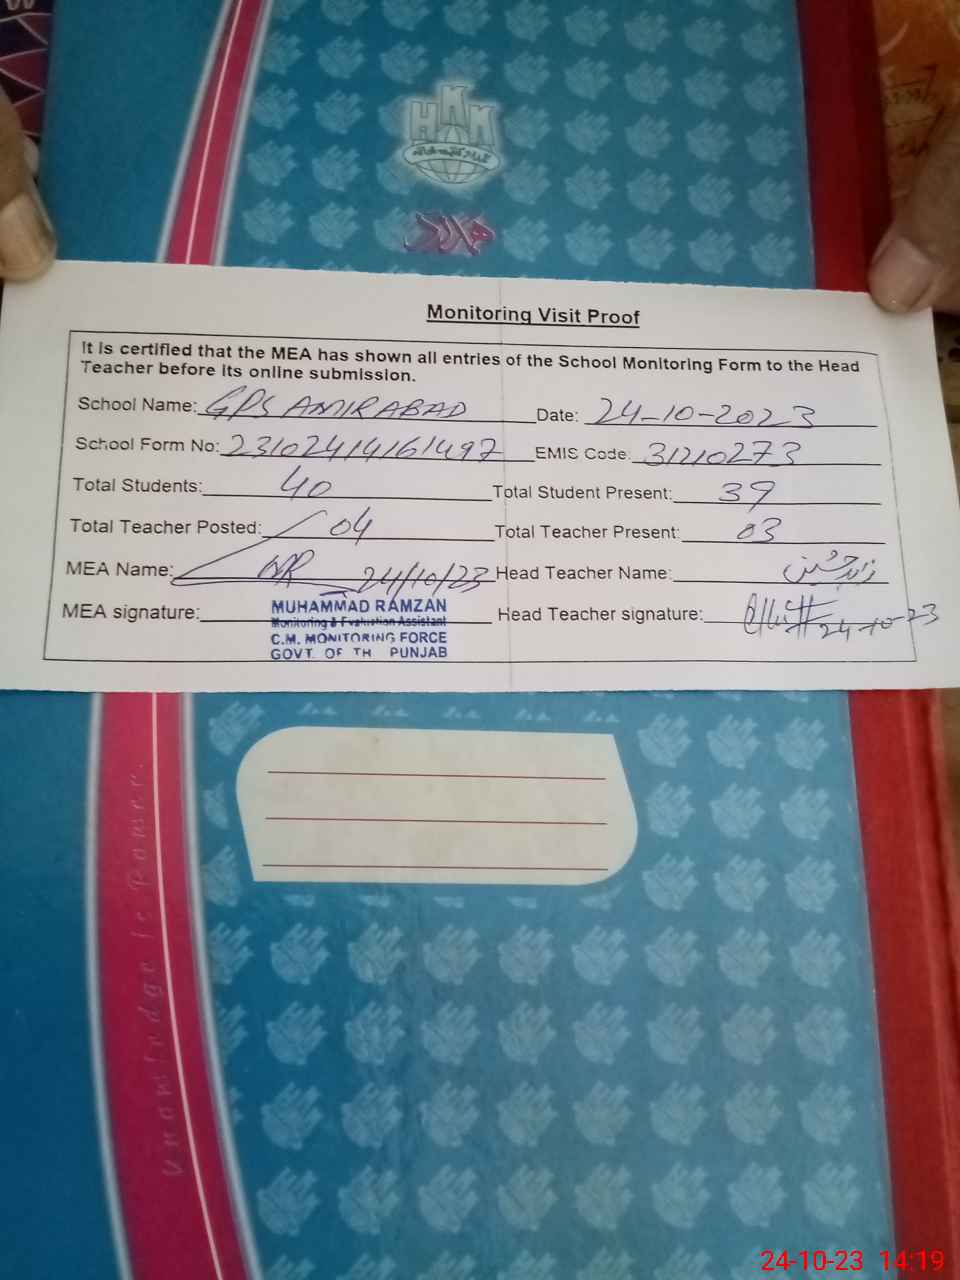 Monitoring Visit Proof
It is certified that the MEA has shown all entries of the School Monitoring Form to the Head
Teacher before its online submission.
School Name: GPS AMIRABAD Date: 24-10-2023
School Form No: 23102414161497 EMIS Code: 31210273
Total Students: 40 Total Student Present: 39
Total Teacher Posted: 04 Total Teacher Present: 03
MEA Name: 24/10/23 Head Teacher Name: زاہد حسین
MEA signature: Head Teacher signature: 24-10-23
MUHAMMAD RAMZAN
Monitoring & Evaluation Assistant
C.M. MONITORING FORCE
GOVT. OF TH PUNJAB
Knowledge is Power.
24-10-23 14:19